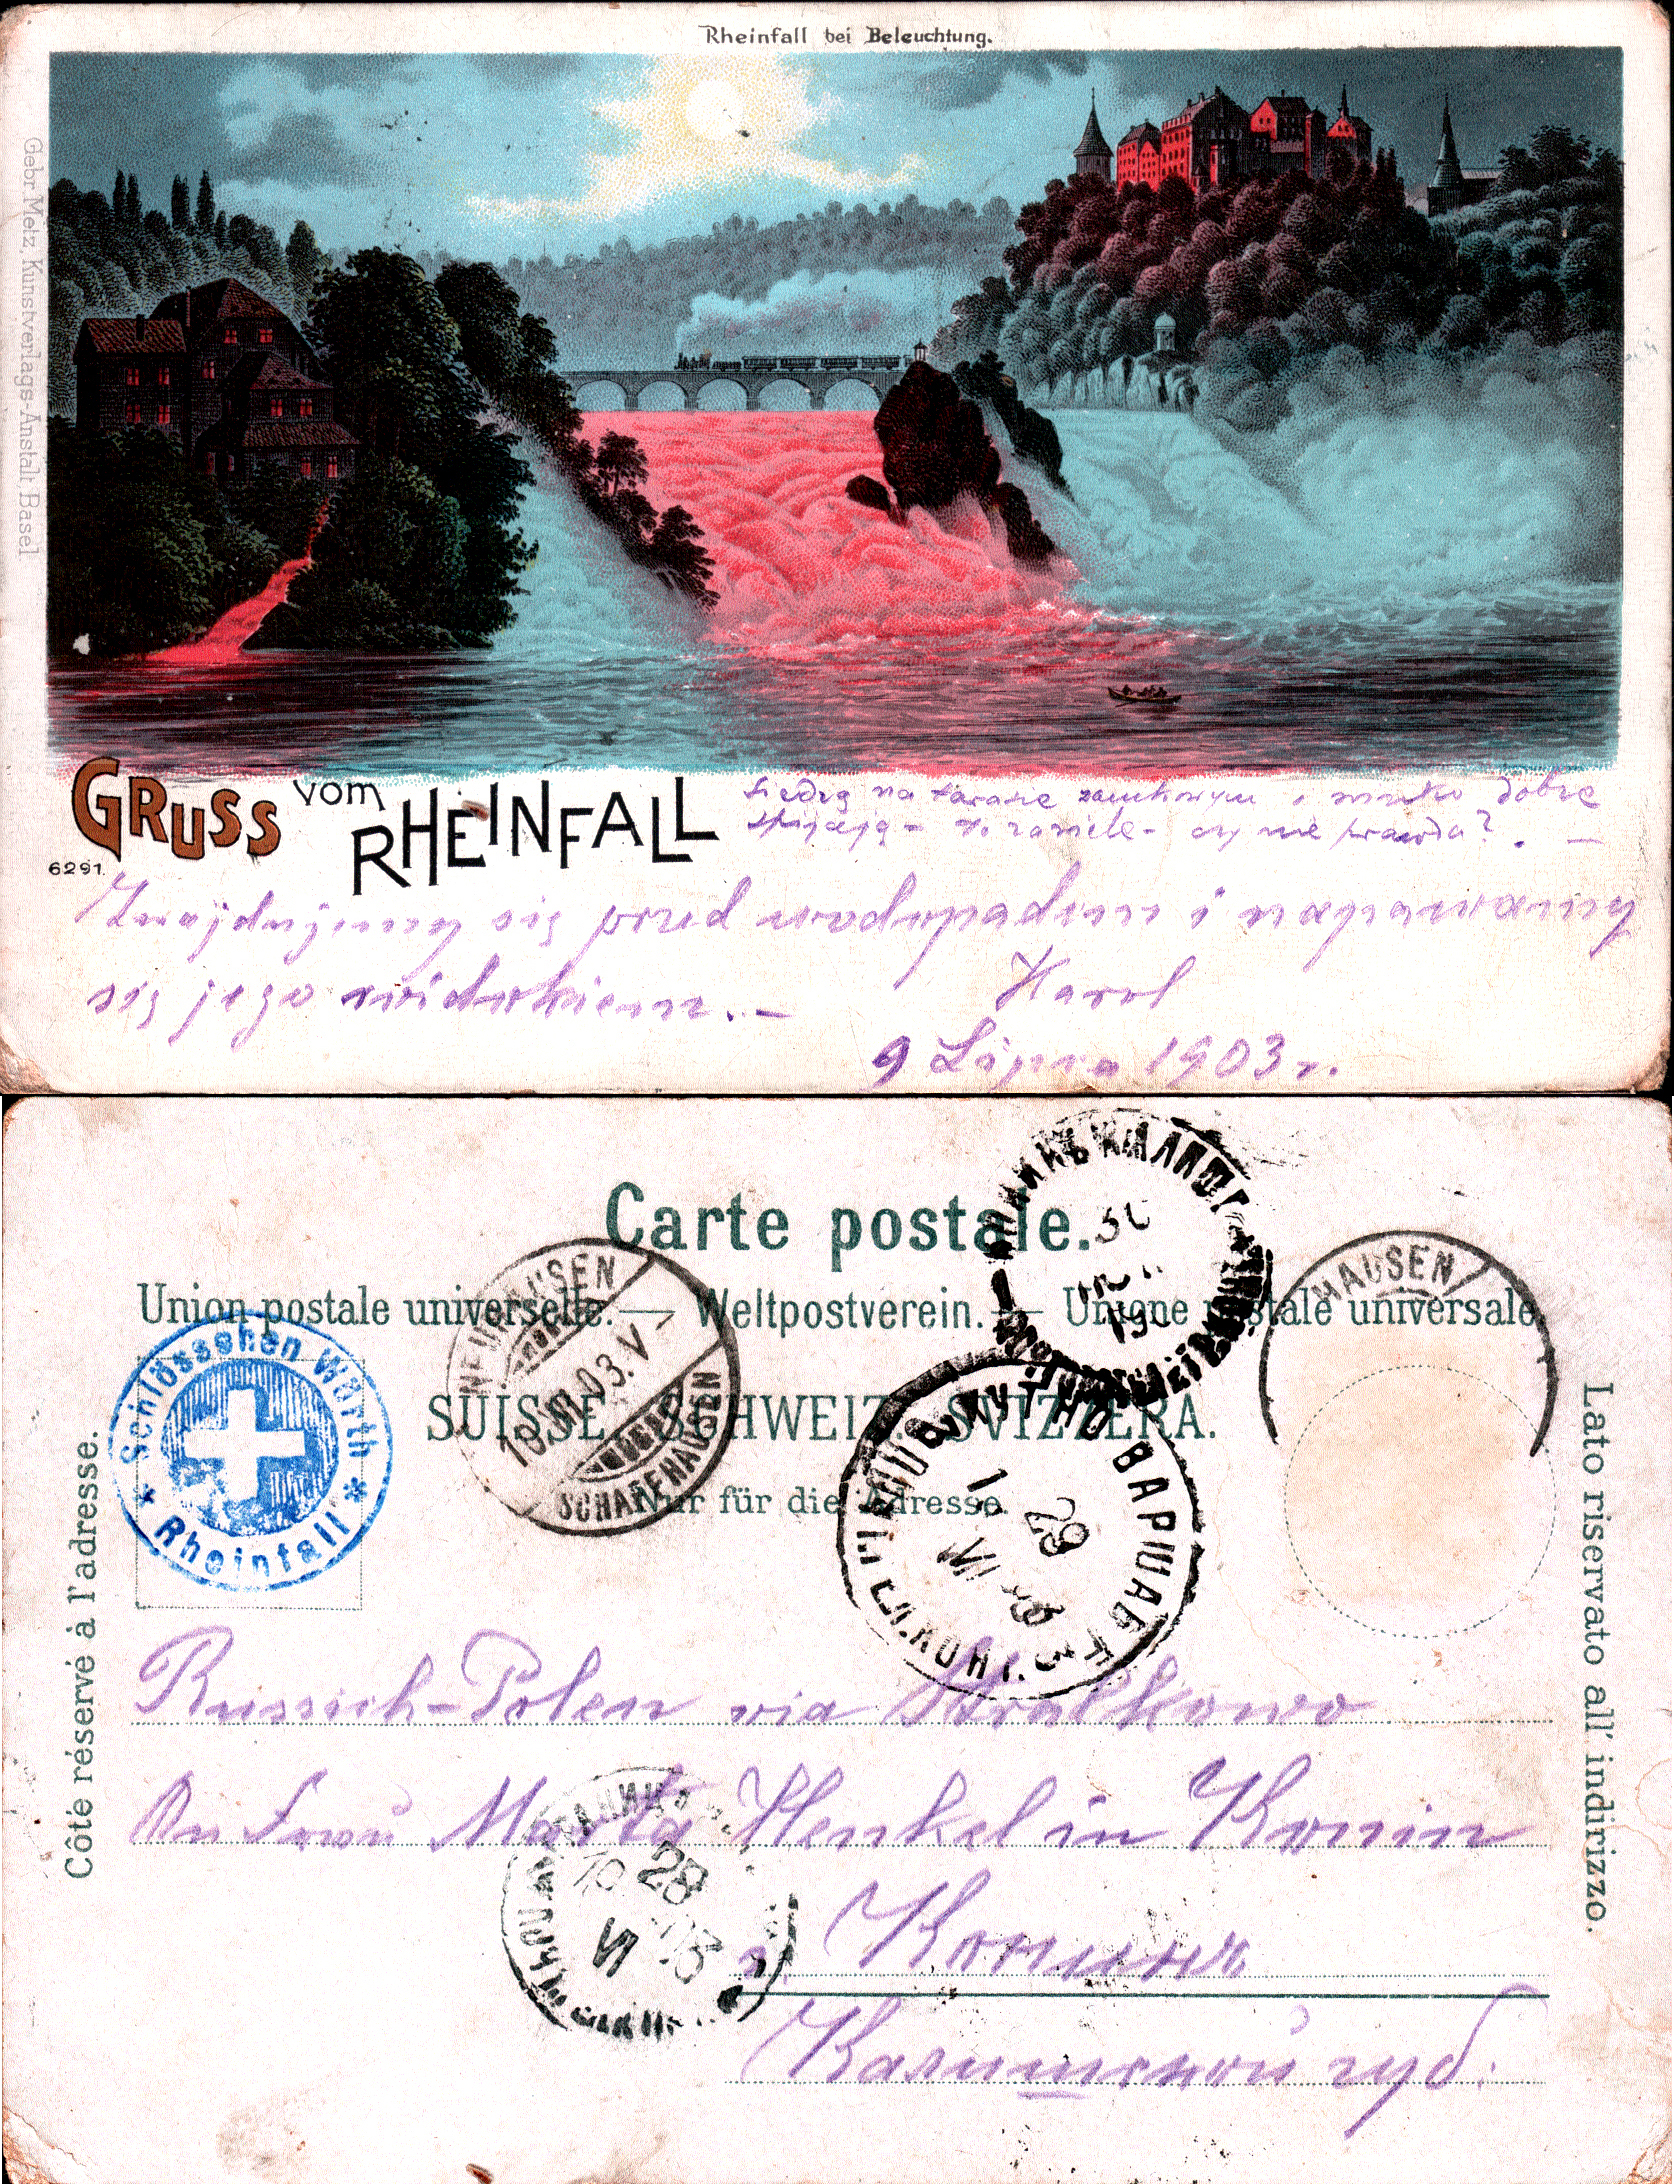 Rheinfall bei Beleuchtung.
Gebr. Metz, Kunstverlags-Anstalt Basel
GRUSS vom RHEINFALL
6291.
Siedzą na tarasie zamkowym i dobre
czy nie prawda? . —
Znajdujemy się przed wodospadem i napawamy
się jego widokiem. —
Karol
9 Lipca 1903 r.
Carte postale.
Union postale universelle. — Weltpostverein. — Unione postale universale
SUISSE. SCHWEIZ. SVIZZERA.
Nur für die Adresse.
Côté réservé à l'adresse.
Lato riservato all' indirizzo.
Schlösschen Wörth
* Rheinfall *
NEUHAUSEN
10.VII.03.V
SCHAFFHAUSEN
HAUSEN
ВАРШАВ
29
VI
28
VI
Russich-Polen via Stralkowo
An Frau Marta Henkel in Konin
Конинъ
Калишской губ.